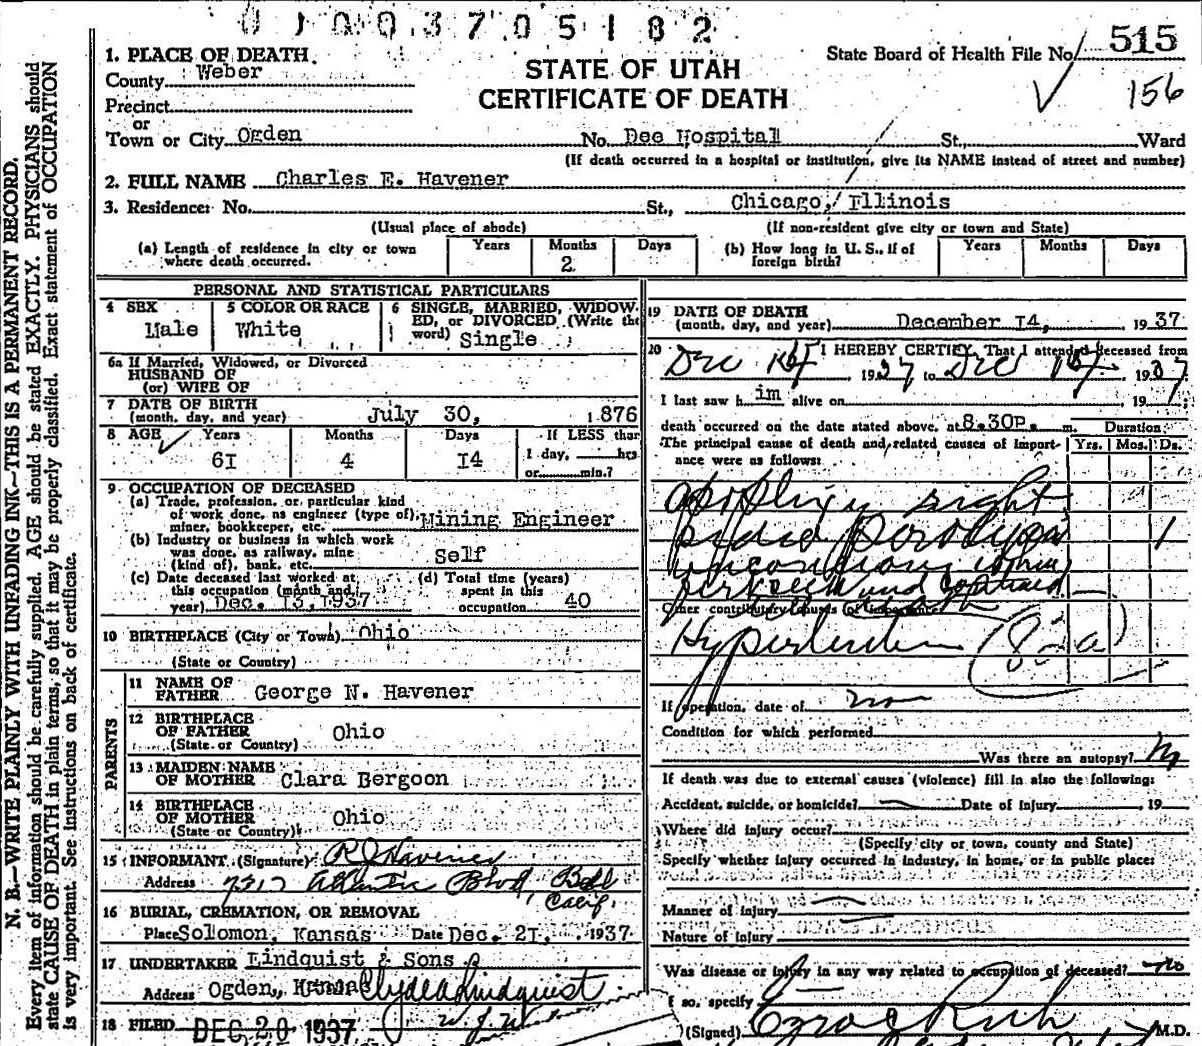 01003705182
1. PLACE OF DEATH
County Weber
Precinct
or
Town or City Ogden No. Dee Hospital St., Ward
(If death occurred in a hospital or institution, give its NAME instead of street and number)
STATE OF UTAH
CERTIFICATE OF DEATH
State Board of Health File No. 515
156
2. FULL NAME Charles E. Havener
3. Residence: No. St., Chicago, Illinois
(Usual place of abode) (If non-resident give city or town and State)
(a) Length of residence in city or town where death occurred. Years Months 2 Days
(b) How long in U. S., if of foreign birth? Years Months Days
PERSONAL AND STATISTICAL PARTICULARS
4 SEX Male
5 COLOR OR RACE White
6 SINGLE, MARRIED, WIDOWED, or DIVORCED (Write the word) Single
6a If Married, Widowed, or Divorced
HUSBAND OF
(or) WIFE OF
7 DATE OF BIRTH
(month, day, and year) July 30, 1876
8 AGE Years Months Days If LESS than
61 4 14 1 day, hrs
or min.?
9 OCCUPATION OF DECEASED
(a) Trade, profession, or particular kind
of work done, as engineer (type of),
miner, bookkeeper, etc. Mining Engineer
(b) Industry or business in which work
was done, as railway, mine
(kind of), bank, etc. Self
(c) Date deceased last worked at
this occupation (month and
year) Dec. 13, 1937
(d) Total time (years)
spent in this
occupation 40
10 BIRTHPLACE (City or Town) Ohio
(State or Country)
PARENTS
11 NAME OF
FATHER George N. Havener
12 BIRTHPLACE
OF FATHER Ohio
(State or Country)
13 MAIDEN NAME
OF MOTHER Clara Bergoon
14 BIRTHPLACE
OF MOTHER Ohio
(State or Country)
15 INFORMANT (Signature) R J Havener
Address 7317 Atlantic Blvd, Bell
Calif.
16 BURIAL, CREMATION, OR REMOVAL
Place Solomon, Kansas Date Dec. 21, 1937
17 UNDERTAKER Lindquist & Sons
Address Ogden, Clyde Lindquist
18 FILED DEC 20 1937
19 DATE OF DEATH
(month, day, and year) December 14, 1937
20 I HEREBY CERTIFY, That I attended deceased from
Dec 1937, to Dec 1937
I last saw him alive on 19 ;
death occurred on the date stated above, at 8.30P. m. Duration
The principal cause of death and related causes of importance were as follows: Yrs. Mos. Ds.
apoplexy right
1
Other contributory causes of importance
Hypertension (82a)
If operation, date of no
Condition for which performed
Was there an autopsy?
If death was due to external causes (violence) fill in also the following:
Accident, suicide, or homicide? Date of injury , 19
Where did injury occur?
(Specify city or town, county and State)
Specify whether injury occurred in industry, in home, or in public place:
Manner of injury
Nature of injury
Was disease or injury in any way related to occupation of deceased? no
If so, specify
(Signed) Ezra C Rich M.D.
N. B.—WRITE PLAINLY WITH UNFADING INK—THIS IS A PERMANENT RECORD.
Every item of information should be carefully supplied. AGE should be stated EXACTLY. PHYSICIANS should
state CAUSE OF DEATH in plain terms, so that it may be properly classified. Exact statement of OCCUPATION
is very important. See instructions on back of certificate.